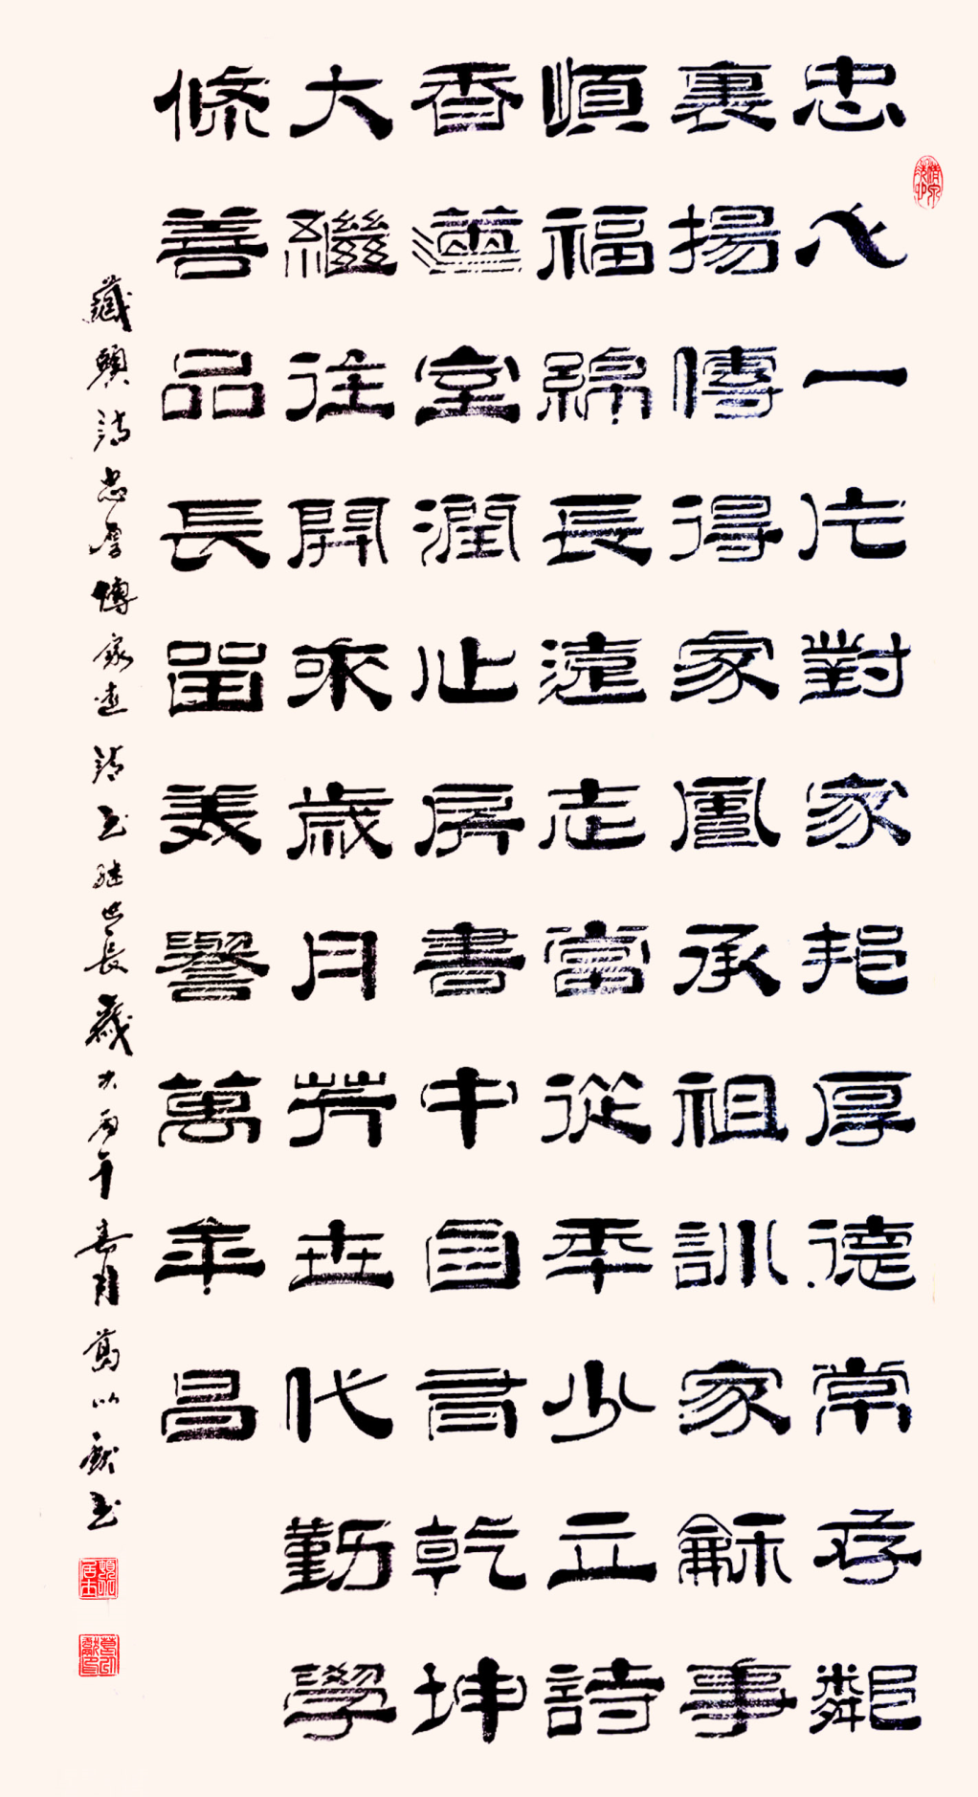 忠心一片對家邦厚德常存鄰
裏揚傳得家風承祖訓家龢事
順福綿長遠志當從年少立詩
香蘊室潤心房書中自有乾坤
大繼往開來歲月芳世代勤學
條善品長留美譽萬年昌
藏頭詩忠厚傳家遠詩书继世長歲次丙午春月葛以獻书